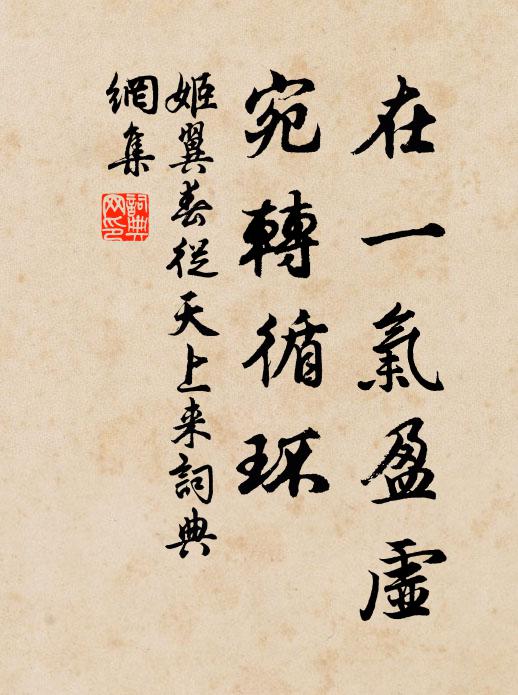 在一氣盈虛
宛轉循环
姬翼春從天上来詞典
網集
詞典
网印